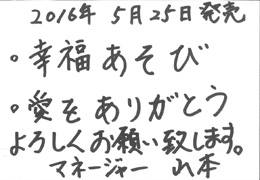 2016年 5月25日発売
・幸福あそび
・愛をありがとう
よろしくお願い致します。
マネージャー 山本